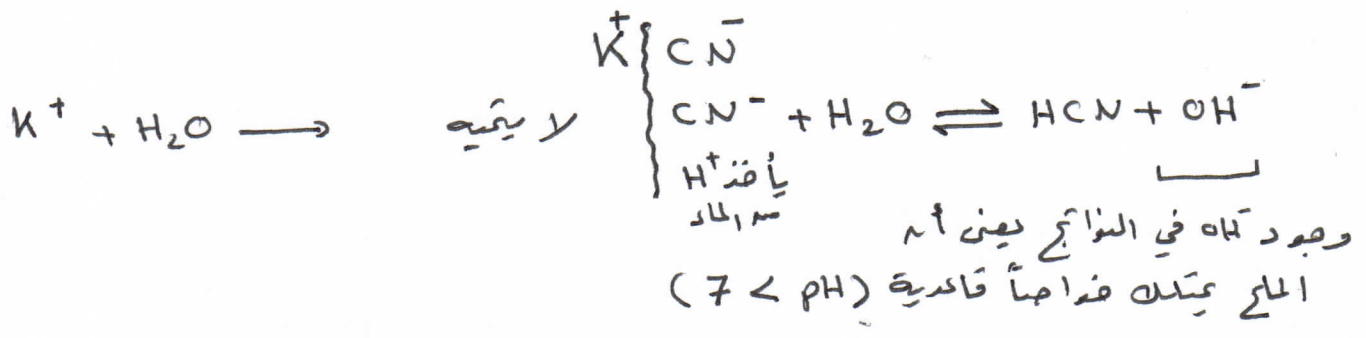 K⁺ | CN⁻
K⁺ + H₂O ⟶ لا يتميه | CN⁻ + H₂O ⇌ HCN + OH⁻
يأخذ H⁺
من الماء
وجود OH⁻ في النواتج يعني أن
الملح يمتلك خواصاً قاعدية (7 < pH)